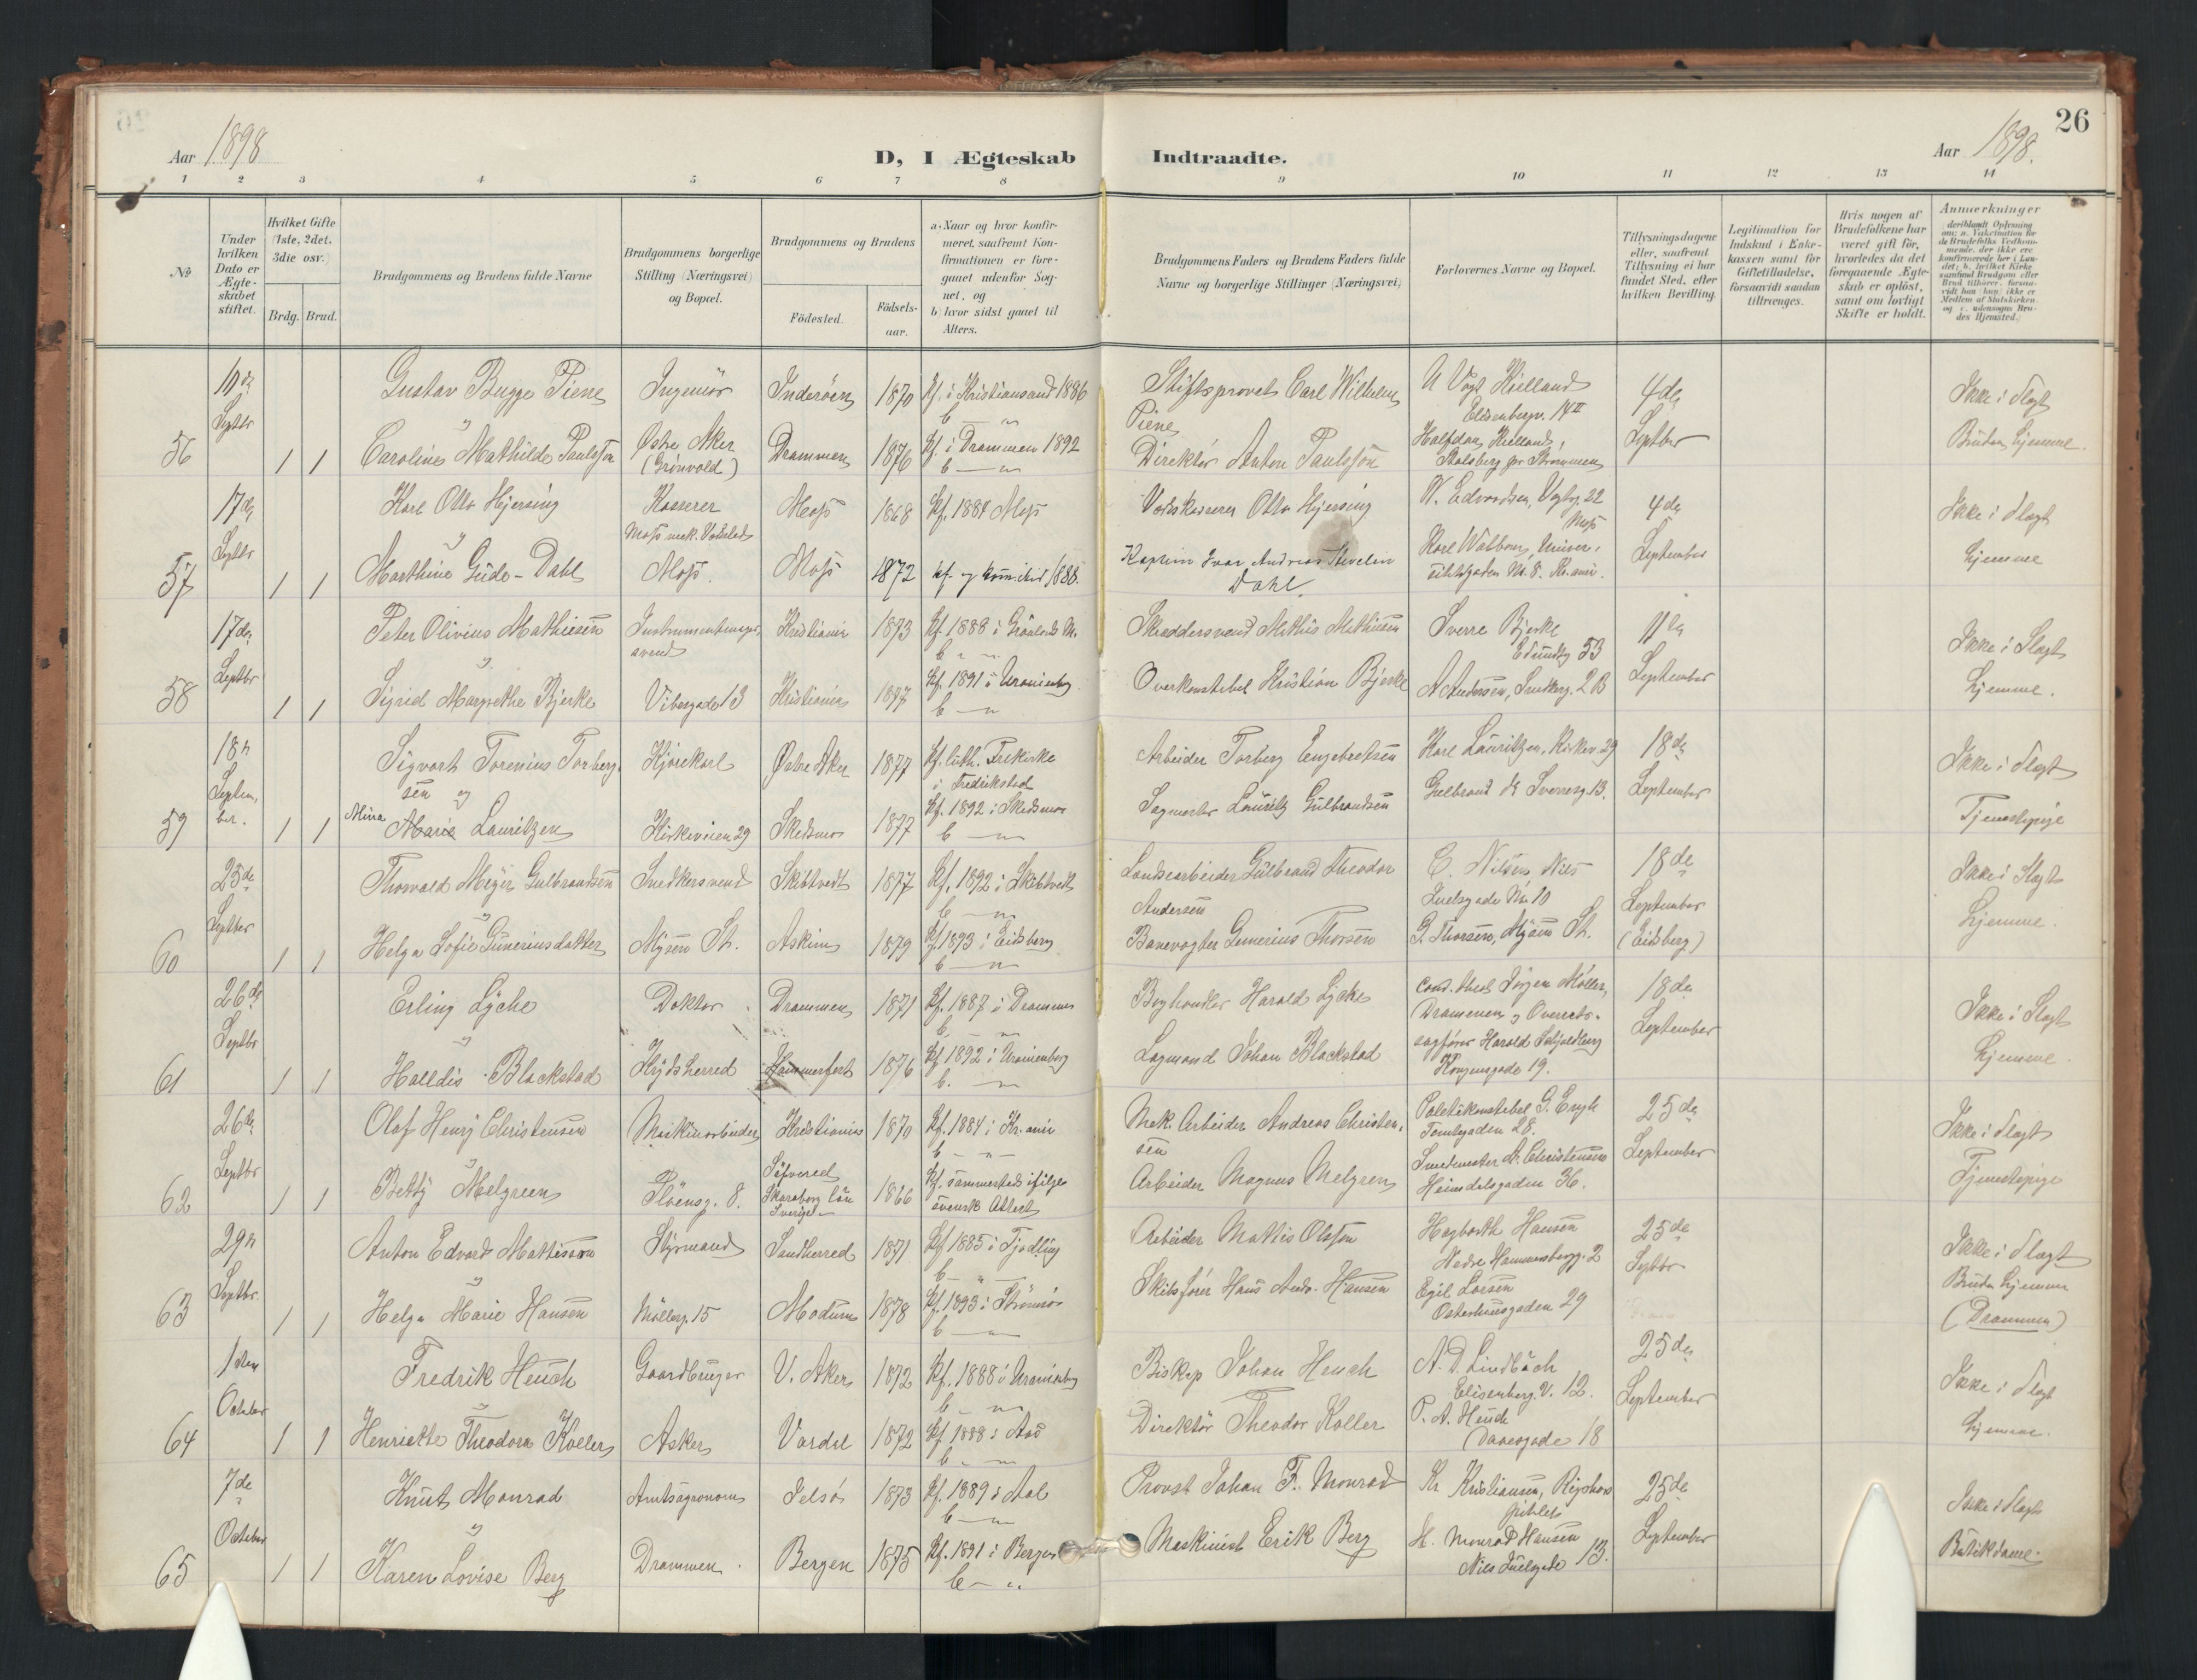 26
Aar 1898
D, I Ægteskab Indtraadte.
Aar 1898.
1 2 3 4 5 6 7 8 9 10 11 12 13 14
No
Under hvilken Dato er Ægteskabet stiftet.
Hvilket Gifte (1ste, 2det, 3die osv.)
Brdg. Brud.
Brudgommens og Brudens fulde Navne
Brudgommens borgerlige Stilling (Næringsvei) og Bopæl.
Brudgommens og Brudens
Födested.
Födselsaar.
a) Naar og hvor konfirmeret, saafremt Konfirmationen er foregaaet udenfor Sognet, og
b) hvor sidst gaaet til Alters.
Brudgommens Faders og Brudens Faders fulde Navne og borgerlige Stillinger (Næringsvei)
Forlovernes Navne og Bopæl.
Tillysningsdagene eller, saafremt Tillysning ei har fundet Sted, efter hvilken Bevilling.
Legitimation for Indskud i Enkekassen samt for Giftetilladelse, forsaavidt saadan tiltrænges.
Hvis nogen af Brudefolkene har været gift för, hvorledes da det foregaaende Ægteskab er oplöst, samt om lovligt Skifte er holdt.
Anmærkninger
10de Septbr
Gustav Bugge Piene Ingeniör Inderöen 1870 Kf. i Kristiansand 1886
Stiftsprovst Carl Wilhelm Piene
U Vogt Kielland
4de Septbr
Ikke i Slegt
56 1 1
Caroline Mathilde Paulsson Östre Aker (Grönvold) Drammen 1876 Kf. i Drammen 1892
Direktör Anton Paulsson
Halfdan Kielland, Stalsberg pr Strömmen
Bruden hjemme.
17de Septbr
Karl Otto Hjersing Kasserer Moss mek. Værksted Moss 1868 Kf. 1884 Moss
Otto Hjersing
W. Edvardsen, Vogtsg. 22 Moss
4de September
Ikke i Slegt
57 1 1
Marthine Gude-Dahl Moss. Moss 1872 kf. og 1888.
Kaptein Ivar Andreas Dahl.
Karl Watborn, Universitetsgaden No. 8. Kr.ania.
hjemme
17de Septbr
Peter Olivius Mathiesen Instrumentmagersvend Kristiania 1873 Kf. 1888 i Grönlands M.
Skreddersvend Mathis Mathiesen
Sverre Bjerke Edmundsg 53
11te September
Ikke i Slegt
58 1 1
Sigrid Margrethe Bjerke Vibesgade 13 Kristiania 1877 Kf. 1891 i Uranienborg
Overkonstabel Kristian Bjerke
A Andersen, 2 B
hjemme.
18de September.
Sigvart Torenius Torbergsen og Kjörekarl Östre Aker 1877 Kf. luth. Frikirke i Fredrikstad
Arbeider Torberg Engebretsen
Karl Lauritzen, Kirkev. 29
18de September
Ikke i Slegt
59 1 1
Mina Marie Lauritzen Kirkeveien 29 Skedsmo 1877 Kf. 1892 i Skedsmo
Sagmester Lauritz Gulbrandsen
Gulbrand Sverresg. 13.
Tjenestepige
25de Septbr
Thorvald Meyer Gulbrandsen Snedkersvend Skibtvedt 1877 Kf. 1892 i Skibtvedt
Landearbeider Gulbrand Theodor Andersen
C. Nilsen, Niels Juelsgade No. 10
18de September (Eidsberg)
Ikke i Slegt
60 1 1
Helga Sofie Guneriusdatter Mysen St. Askim 1879 Kf 1893 i Eidsberg
Banevogter Gunerius Thorsen
G. Thorsen, Mysen St.
hjemme.
26de Septbr
Erling Lyche Doktor Drammen 1871 Kf. 1887 i Drammen
Boghandler Harald Lyche
Cand. theol Jörgen Möller, Drammen og Overretssagförer Harald Schjoldborg Kongensgade 19.
18de September
Ikke i Slegt
61 1 1
Halldis Blackstad Krydsherred Hammerfest 1876 Kf 1892 i Uranienborg
Lagmand Johan Blackstad
hjemme.
26de Septbr
Olaf Henry Christensen Maskinarbeider Kristiania 1870 Kf. 1884 i Kr.ania
Mek. Arbeider Andreas Christensen
Politikonstabel G. Engh Tomtegaden 28.
25de September
Ikke i Slegt
62 1 1
Betty Melgreen Plöensg. 8. Skaraborg län Sverige 1866 Kf. sammesteds ifölge svensk Attest
Arbeider Magnus Melgren
Smedmester A. Christensen Heimdalsgaden 36.
Tjenestepige
29de Septbr.
Anton Edvard Mathisson Styrmand Sandherred 1871 Kf 1885 i Tjödling
Arbeider Mathis Olsson
Hagbarth Hansen Nedre Hammersborgg. 2
25de Septbr
Ikke i Slegt
63 1 1
Helga Marie Hansen Möllerg. 15 Modum 1878 Kf. 1893 i Strömsö
Skibsförer Hans Andr. Hansen
Egil Larsen Osterhausgaden 29
Bruden hjemme (Drammen)
1sten October
Fredrik Heuch Gaardbruger V. Aker 1872 Kf. 1888 i Uranienborg
Biskop Johan Heuch
A. D. Lindbäch Elisenberg. V. 12.
25de September
Ikke i Slegt
64 1 1
Henriette Theodora Koller Asker Vardal 1872 Kf 1888 i Aas
Direktör Theodor Koller
P. A. Heuch Daaesgade 18
hjemme.
7de October
Knut Monrad Amtsagronom Jelsö 1873 Kf. 1889 i Aal
Provst Johan F. Monrad
Kr Kristiansen, Rigshospitalet
25de September
Ikke i Slegt
65 1 1
Karen Lovise Berg Drammen. Bergen 1875 Kf. 1891 i Bergen
Maskinist Erik Berg
H. Monrad Hansen Niels Juelsgade 13.
Butikdame.